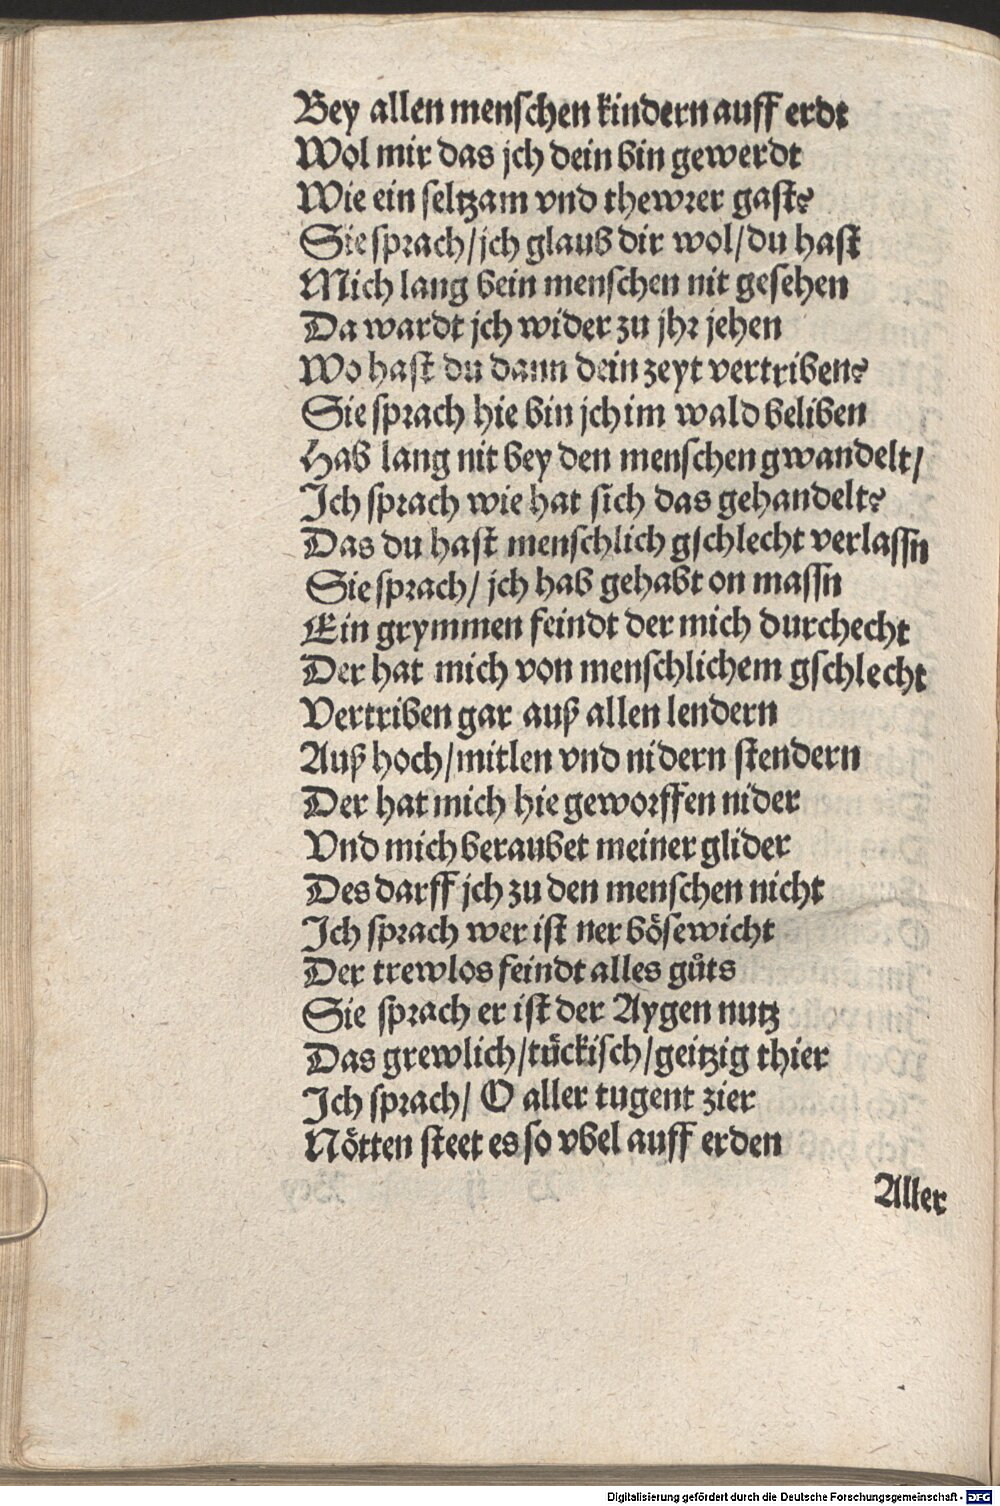 Bey allen menschen kindern auff erdt
Wol mir das jch dein bin gewerdt
Wie ein seltzam vnd thewrer gast?
Sie sprach/jch glaub dir wol/du hast
Mich lang bein menschen nit gesehen
Da wardt jch wider zu jhr jehen
Wo hast du dann dein zeyt vertriben?
Sie sprach hie bin jch im wald beliben
Hab lang nit bey den menschen gwandelt/
Ich sprach wie hat sich das gehandelt?
Das du hast menschlich gschlecht verlassn
Sie sprach/ jch hab gehabt on massn
Ein grymmen feindt der mich durchecht
Der hat mich von menschlichem gschlecht
Vertriben gar auß allen lendern
Auß hoch/mitlen vnd nidern stendern
Der hat mich hie geworffen nider
Vnd mich beraubet meiner glider
Des darff jch zu den menschen nicht
Ich sprach wer ist ner bösewicht
Der trewlos feindt alles gůts
Sie sprach er ist der Aygen nutz
Das grewlich/tückisch/geitzig thier
Ich sprach/ O aller tugent zier
Nötten steet es so vbel auff erden
Aller
Digitalisierung gefördert durch die Deutsche Forschungsgemeinschaft - DFG